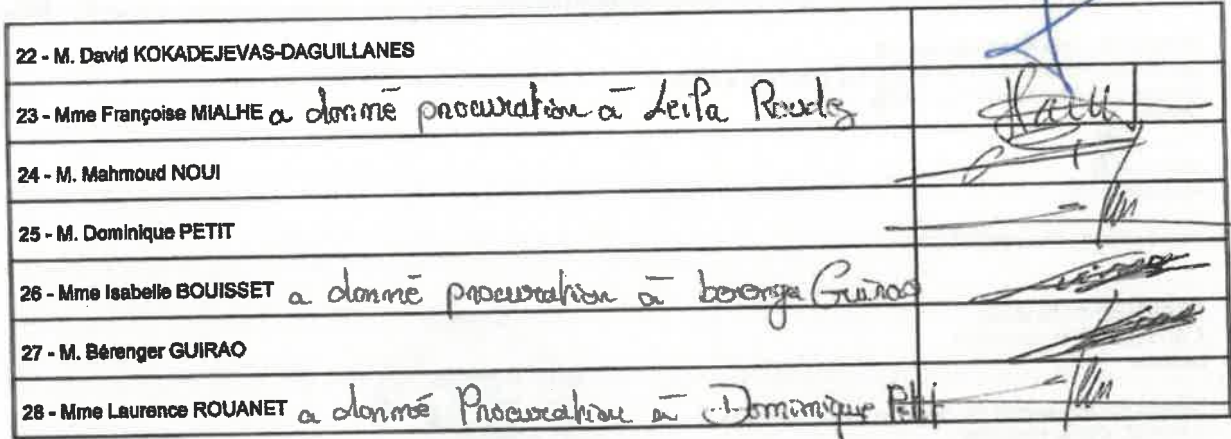 22 - M. David KOKADEJEVAS-DAGUILLANES
23 - Mme Françoise MIALHE a donné procuration à Leila
24 - M. Mahmoud NOUI
25 - M. Dominique PETIT
26 - Mme Isabelle BOUISSET a donné procuration à Guirao
27 - M. Bérenger GUIRAO
28 - Mme Laurence ROUANET a donné Procuration à Dominique Petit